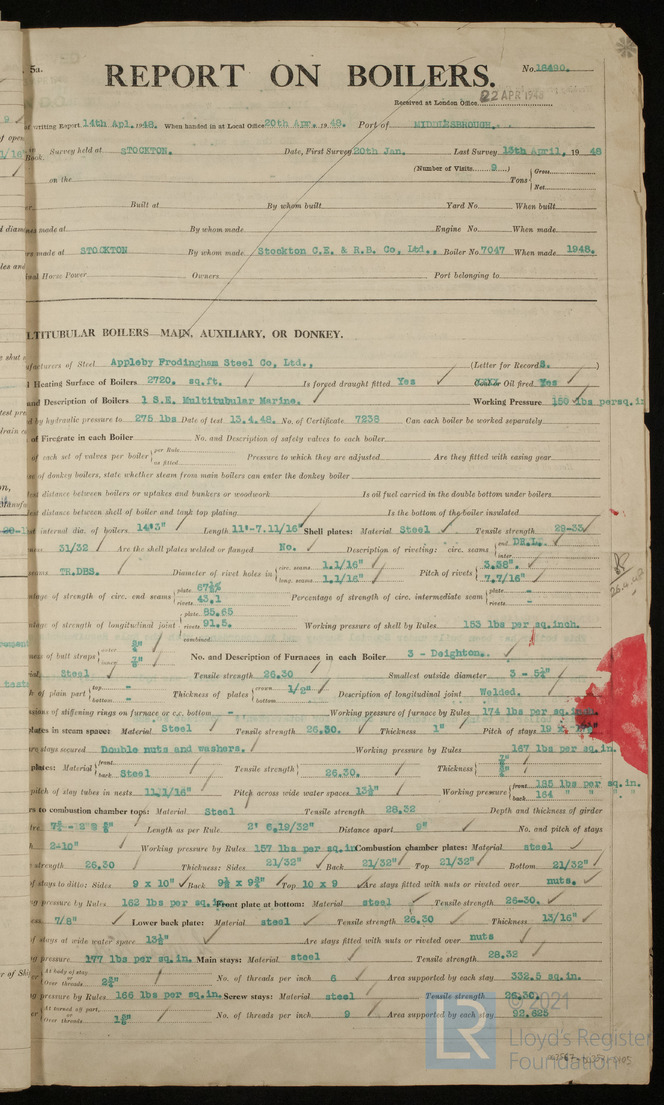 5a.
REPORT ON BOILERS.
No. 16490.
Received at London Office 22 APR 1948
of writing Report 14th Apl. 1948. When handed in at Local Office 20th Apr. 1948. Port of MIDDLESBROUGH.
Survey held at STOCKTON. Date, First Survey 20th Jan. Last Survey 13th April, 1948
Book.
on the (Number of Visits 9 ) Gross
Tons Net
Built at By whom built Yard No. When built
made at By whom made Engine No. When made
made at STOCKTON By whom made Stockton C.E. & R.B. Co, Ltd., Boiler No. 7047 When made 1948.
Horse Power Owners Port belonging to
LTITUBULAR BOILERS MAIN, AUXILIARY, OR DONKEY.
ufacturers of Steel Appleby Frodingham Steel Co, Ltd., (Letter for Record S. )
Heating Surface of Boilers 2720. sq.ft. Is forced draught fitted Yes Oil fired Yes
and Description of Boilers 1 S.E. Multitubular Marine. Working Pressure 150 lbs persq.in
by hydraulic pressure to 275 lbs Date of test 13.4.48. No. of Certificate 7238 Can each boiler be worked separately
of Firegrate in each Boiler No. and Description of safety valves to each boiler
of each set of valves per boiler per Rule as fitted Pressure to which they are adjusted Are they fitted with easing gear
of donkey boilers, state whether steam from main boilers can enter the donkey boiler
distance between boilers or uptakes and bunkers or woodwork Is oil fuel carried in the double bottom under boilers
distance between shell of boiler and tank top plating Is the bottom of the boiler insulated
internal dia. of boilers 14'3" Length 11'-7.11/16" Shell plates: Material Steel Tensile strength 29-33
31/32 Are the shell plates welded or flanged No. Description of riveting: circ. seams end DR.L. inter.
seams TR.DBS. Diameter of rivet holes in circ. seams 1.1/16" long. seams 1.1/16" Pitch of rivets 3.38" 7.7/16"
of strength of circ. end seams plate rivets 43.1 Percentage of strength of circ. intermediate seam plate - rivets -
of strength of longitudinal joint plate 85.65 rivets 91.5. combined Working pressure of shell by Rules 153 lbs per sq.inch.
of butt straps outer inner 7/8" No. and Description of Furnaces in each Boiler 3 - Deighton.
Steel Tensile strength 26.30 Smallest outside diameter
of plain part top - bottom - Thickness of plates crown 1/2" bottom Description of longitudinal joint Welded.
of stiffening rings on furnace or c.c. bottom - Working pressure of furnace by Rules 174 lbs per sq.
plates in steam space: Material Steel Tensile strength 26.30. Thickness 1" Pitch of stays
stays secured Double nuts and washers. Working pressure by Rules 167 lbs per sq.in.
plates: Material front back Steel Tensile strength 26.30. Thickness 7/8"
pitch of stay tubes in nests 11.1/16" Pitch across wide water spaces 13½" Working pressure front 185 lbs per sq.in. back 164 " " "
to combustion chamber tops: Material Steel Tensile strength 28.32 Depth and thickness of girder
Length as per Rule 2' 6.19/32" Distance apart 9" No. and pitch of stays
2-10" Working pressure by Rules 157 lbs per sq.in Combustion chamber plates: Material steel
strength 26.30 Thickness: Sides 21/32" Back 21/32" Top 21/32" Bottom 21/32"
of stays to ditto: Sides 9 x 10" Back Top 10 x 9 Are stays fitted with nuts or riveted over nuts.
pressure by Rules 162 lbs per sq. Front plate at bottom: Material steel Tensile strength 26-30.
7/8" Lower back plate: Material steel Tensile strength 26.30 Thickness 13/16"
of stays at wide water space 13½" Are stays fitted with nuts or riveted over nuts
pressure 177 lbs per sq.in. Main stays: Material steel Tensile strength 28.32
At body of stay or Over threads No. of threads per inch 6 Area supported by each stay 332.5 sq.in.
pressure by Rules 166 lbs per sq.in. Screw stays: Material steel Tensile strength 26.30.
At turned off part, or Over threads No. of threads per inch 9 Area supported by each stay 92.625
LR
© 2021
Lloyd's Register
Foundation